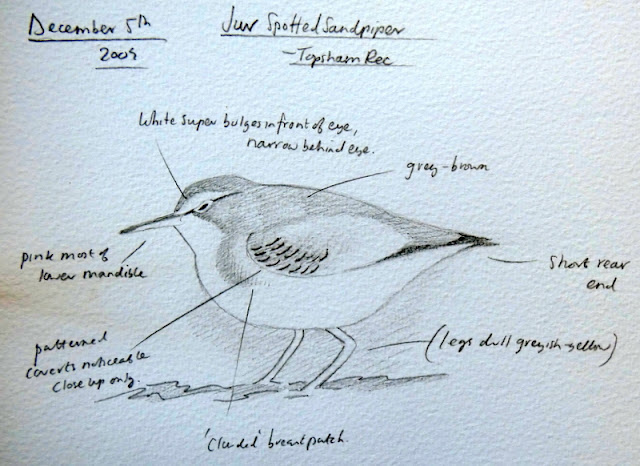 December 5th
2009
Juv Spotted Sandpiper
- Topsham Rec
White super' bulges in front of eye,
narrow behind eye.
grey-brown
pink most of
lower mandible
short rear
end
patterned
coverts noticeable
close up only.
(legs dull greyish-yellow)
'Clouded' breast patch.